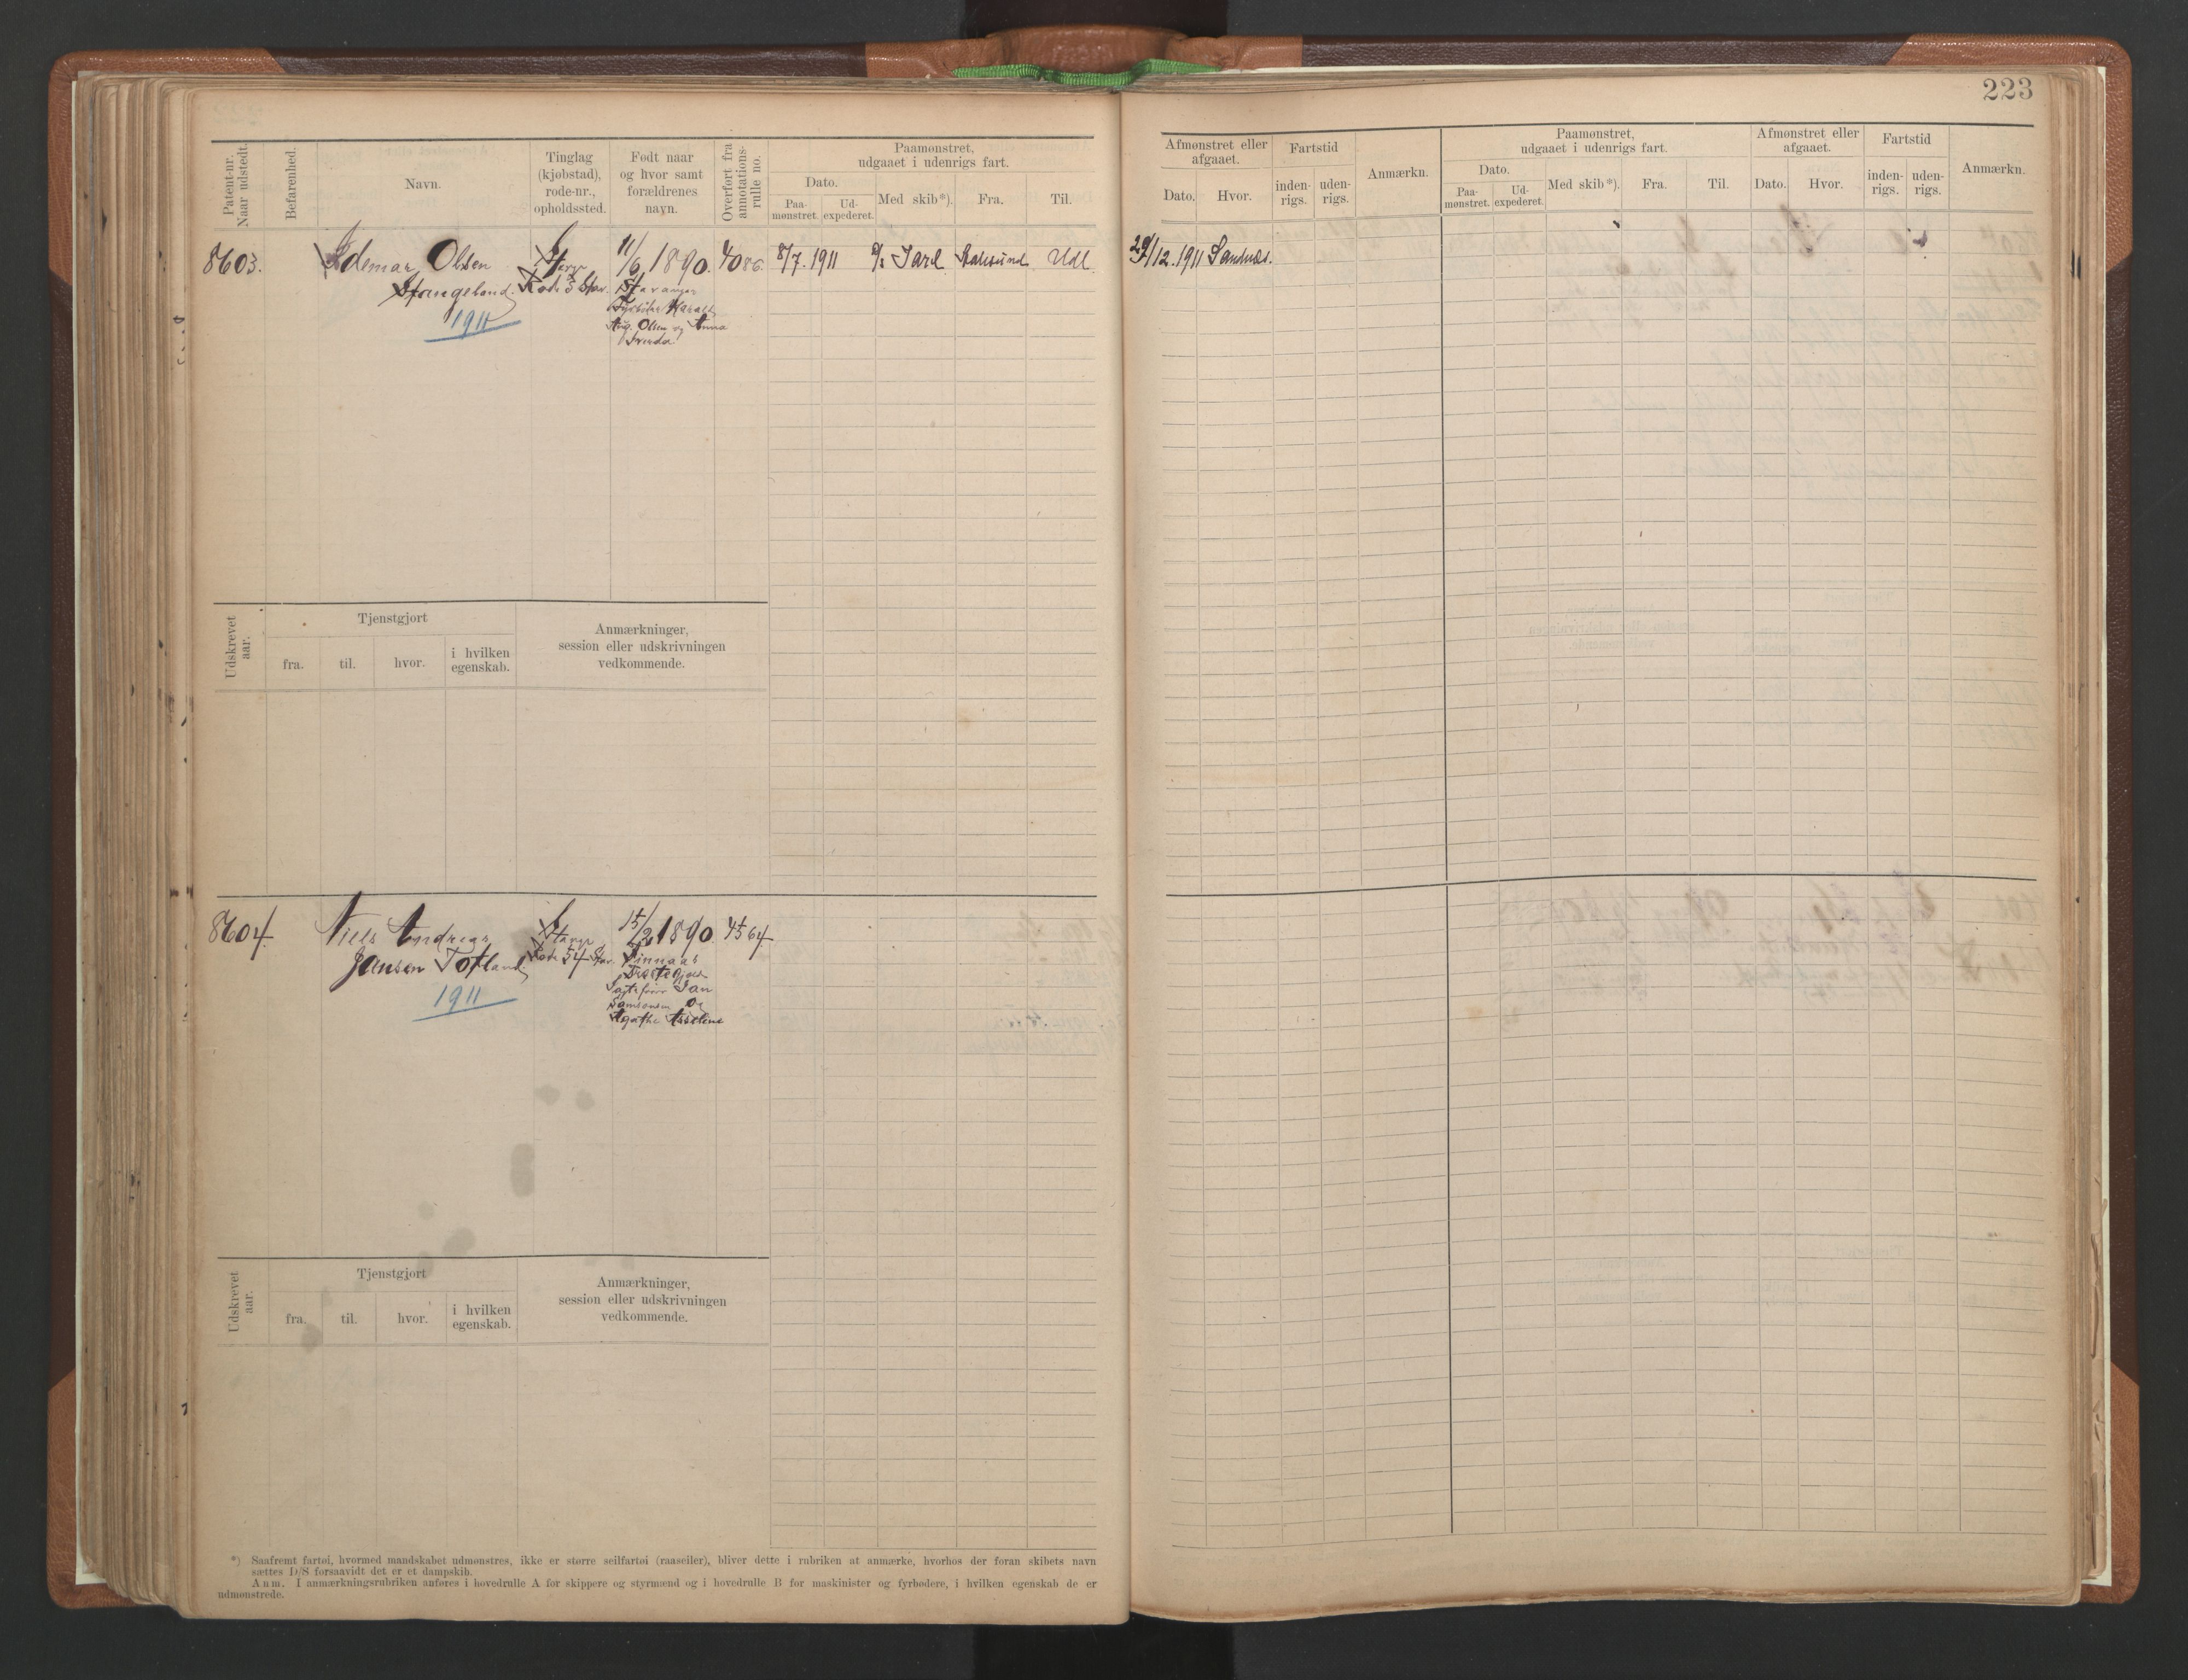 223
Patent-nr.
Naar udstedt.
Befarenhed.
Navn.
Tinglag
(kjøbstad),
rode-nr.,
opholdssted.
Født naar
og hvor samt
forældrenes
navn.
Overført fra
annotations-
rulle no.
Paamønstret,
udgaaet i udenrigs fart.
Dato.
Paa-
mønstret.
Ud-
expederet.
Med skib*).
Fra.
Til.
Afmønstret eller
afgaaet.
Dato.
Hvor.
Fartstid
inden-
rigs.
uden-
rigs.
Anmærkn.
Paamønstret,
udgaaet i udenrigs fart.
Dato.
Paa-
mønstret.
Ud-
expederet.
Med skib*).
Fra.
Til.
Afmønstret eller
afgaaet.
Dato.
Hvor.
Fartstid
inden-
rigs.
uden-
rigs.
Anmærkn.
8603.
Idemar Olsen
Stangeland.
1911
Rode 3 Stav.
11/6 1890.
Stavanger
Fyrbøter Harald
Aug. Olsen og Anna
4086.
8/7. 1911
Jarl
Udl.
29/12. 1911 Sandnæs.
Udskrevet
aar.
Tjenstgjort
fra.
til.
hvor.
i hvilken
egenskab.
Anmærkninger,
session eller udskrivningen
vedkommende.
8604.
Niels Andreas
Jansen Totland
1911
Rode 54 Stav.
15/2 1890.
Jan
Samsonsen og
Agathe
4564
Udskrevet
aar.
Tjenstgjort
fra.
til.
hvor.
i hvilken
egenskab.
Anmærkninger,
session eller udskrivningen
vedkommende.
*) Saafremt fartøi, hvormed mandskabet udmønstres, ikke er større seilfartøi (raaseiler), bliver dette i rubriken at anmærke, hvorhos der foran skibets navn
sættes D/S forsaavidt det er et dampskib.
Anm. I anmærkningsrubriken anføres i hovedrulle A for skippere og styrmænd og i hovedrulle B for maskinister og fyrbødere, i hvilken egenskab de er
udmønstrede.